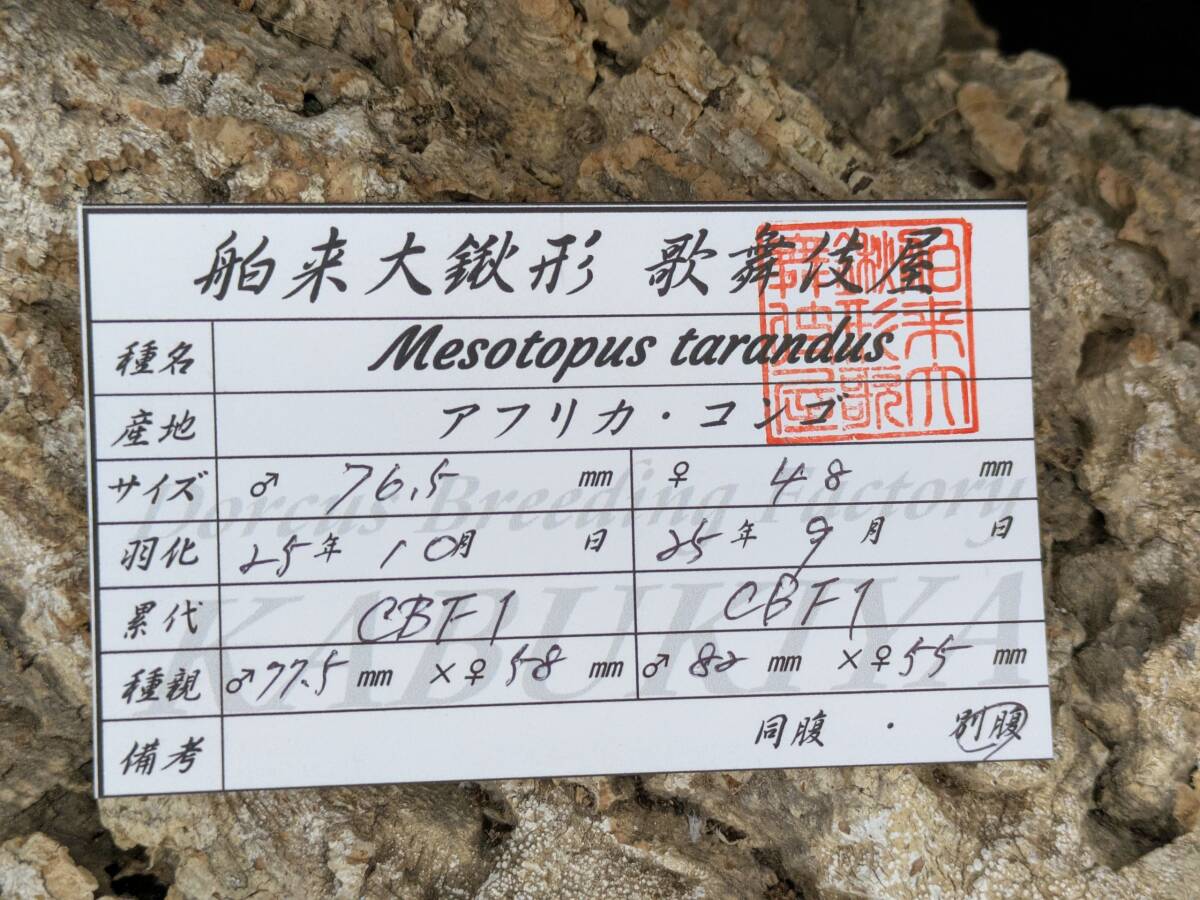 舶来大鍬形 歌舞伎屋
種名 Mesotopus tarandus
産地 アフリカ・コンゴ
サイズ ♂ 76.5 mm ♀ 48 mm
羽化 25年 10月 日 25年 9月 日
累代 CBF1 CBF1
種親 ♂77.5 mm ×♀58 mm ♂ 82 mm ×♀55 mm
備考 同腹 ・ 別腹
Dorcus Breeding Factory
KABUKIYA
舶来大鍬形歌舞伎屋